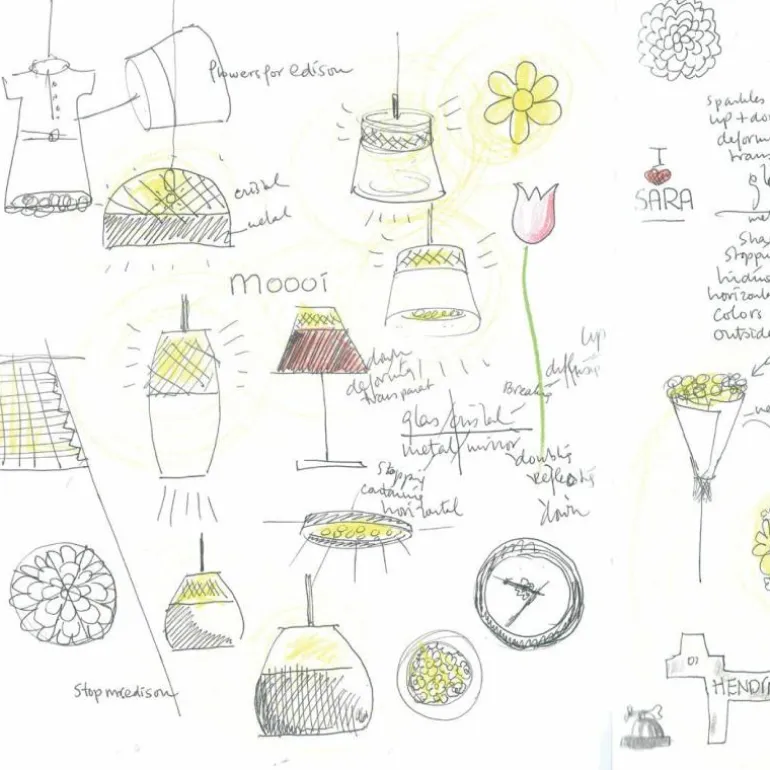 flowers for edison
cristal
metal
moooi
down
deforming
transparant
up
diffusing
Breaking
glas/cristal
metal/mirror
doubling
Reflecting
down
Stopping
containing
horizontal
Stop mr edison
sparkles
up + do
deform
trans
I
SARA
gl
me
Sha
Stoppi
hiding
horizont
colors
outside
HENDR